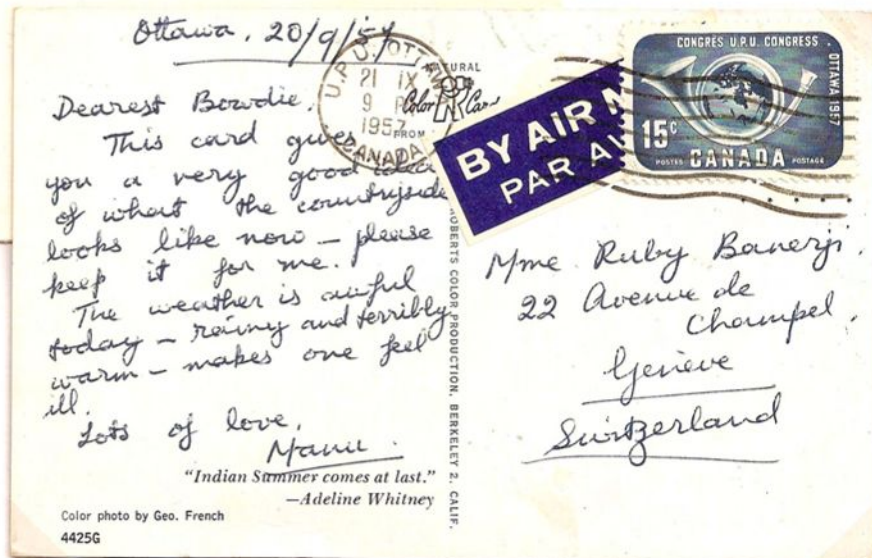 Ottawa, 20/9/57
Dearest Bowdie,
This card gives
you a very good idea
of what the countryside
looks like now – please
keep it for me.
The weather is awful
today – rainy and terribly
warm – makes one feel
ill.
Lots of love,
Manu.
"Indian Summer comes at last."
—Adeline Whitney
Color photo by Geo. French
4425G
U.P.U. OTTAWA
21 IX
9 P
1957
CANADA
NATURAL
Color Card
FROM
ROBERTS COLOR PRODUCTION, BERKELEY 2, CALIF.
BY AIR M
PAR AV
CONGRÈS U.P.U. CONGRESS
OTTAWA 1957
15c
POSTES CANADA POSTAGE
Mme Ruby Banerji,
22 Avenue de
Champel,
Genève
Switzerland